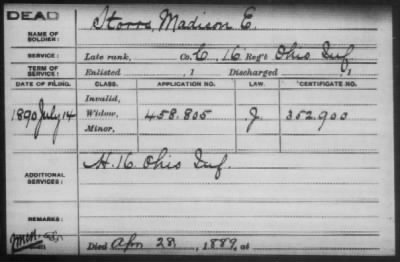 DEAD
NAME OF SOLDIER: Storrs, Madison E.
SERVICE: Late rank, Co. C, 16 Reg't Ohio Inf.
TERM OF SERVICE: Enlisted , 1 Discharged , 1
DATE OF FILING. CLASS. APPLICATION NO. LAW. CERTIFICATE NO.
Invalid,
1890 July 14 Widow, 458.805 J. 352.900
Minor,
ADDITIONAL SERVICES: H. 16. Ohio Inf.
REMARKS:
Died Apr. 28, 1889, at